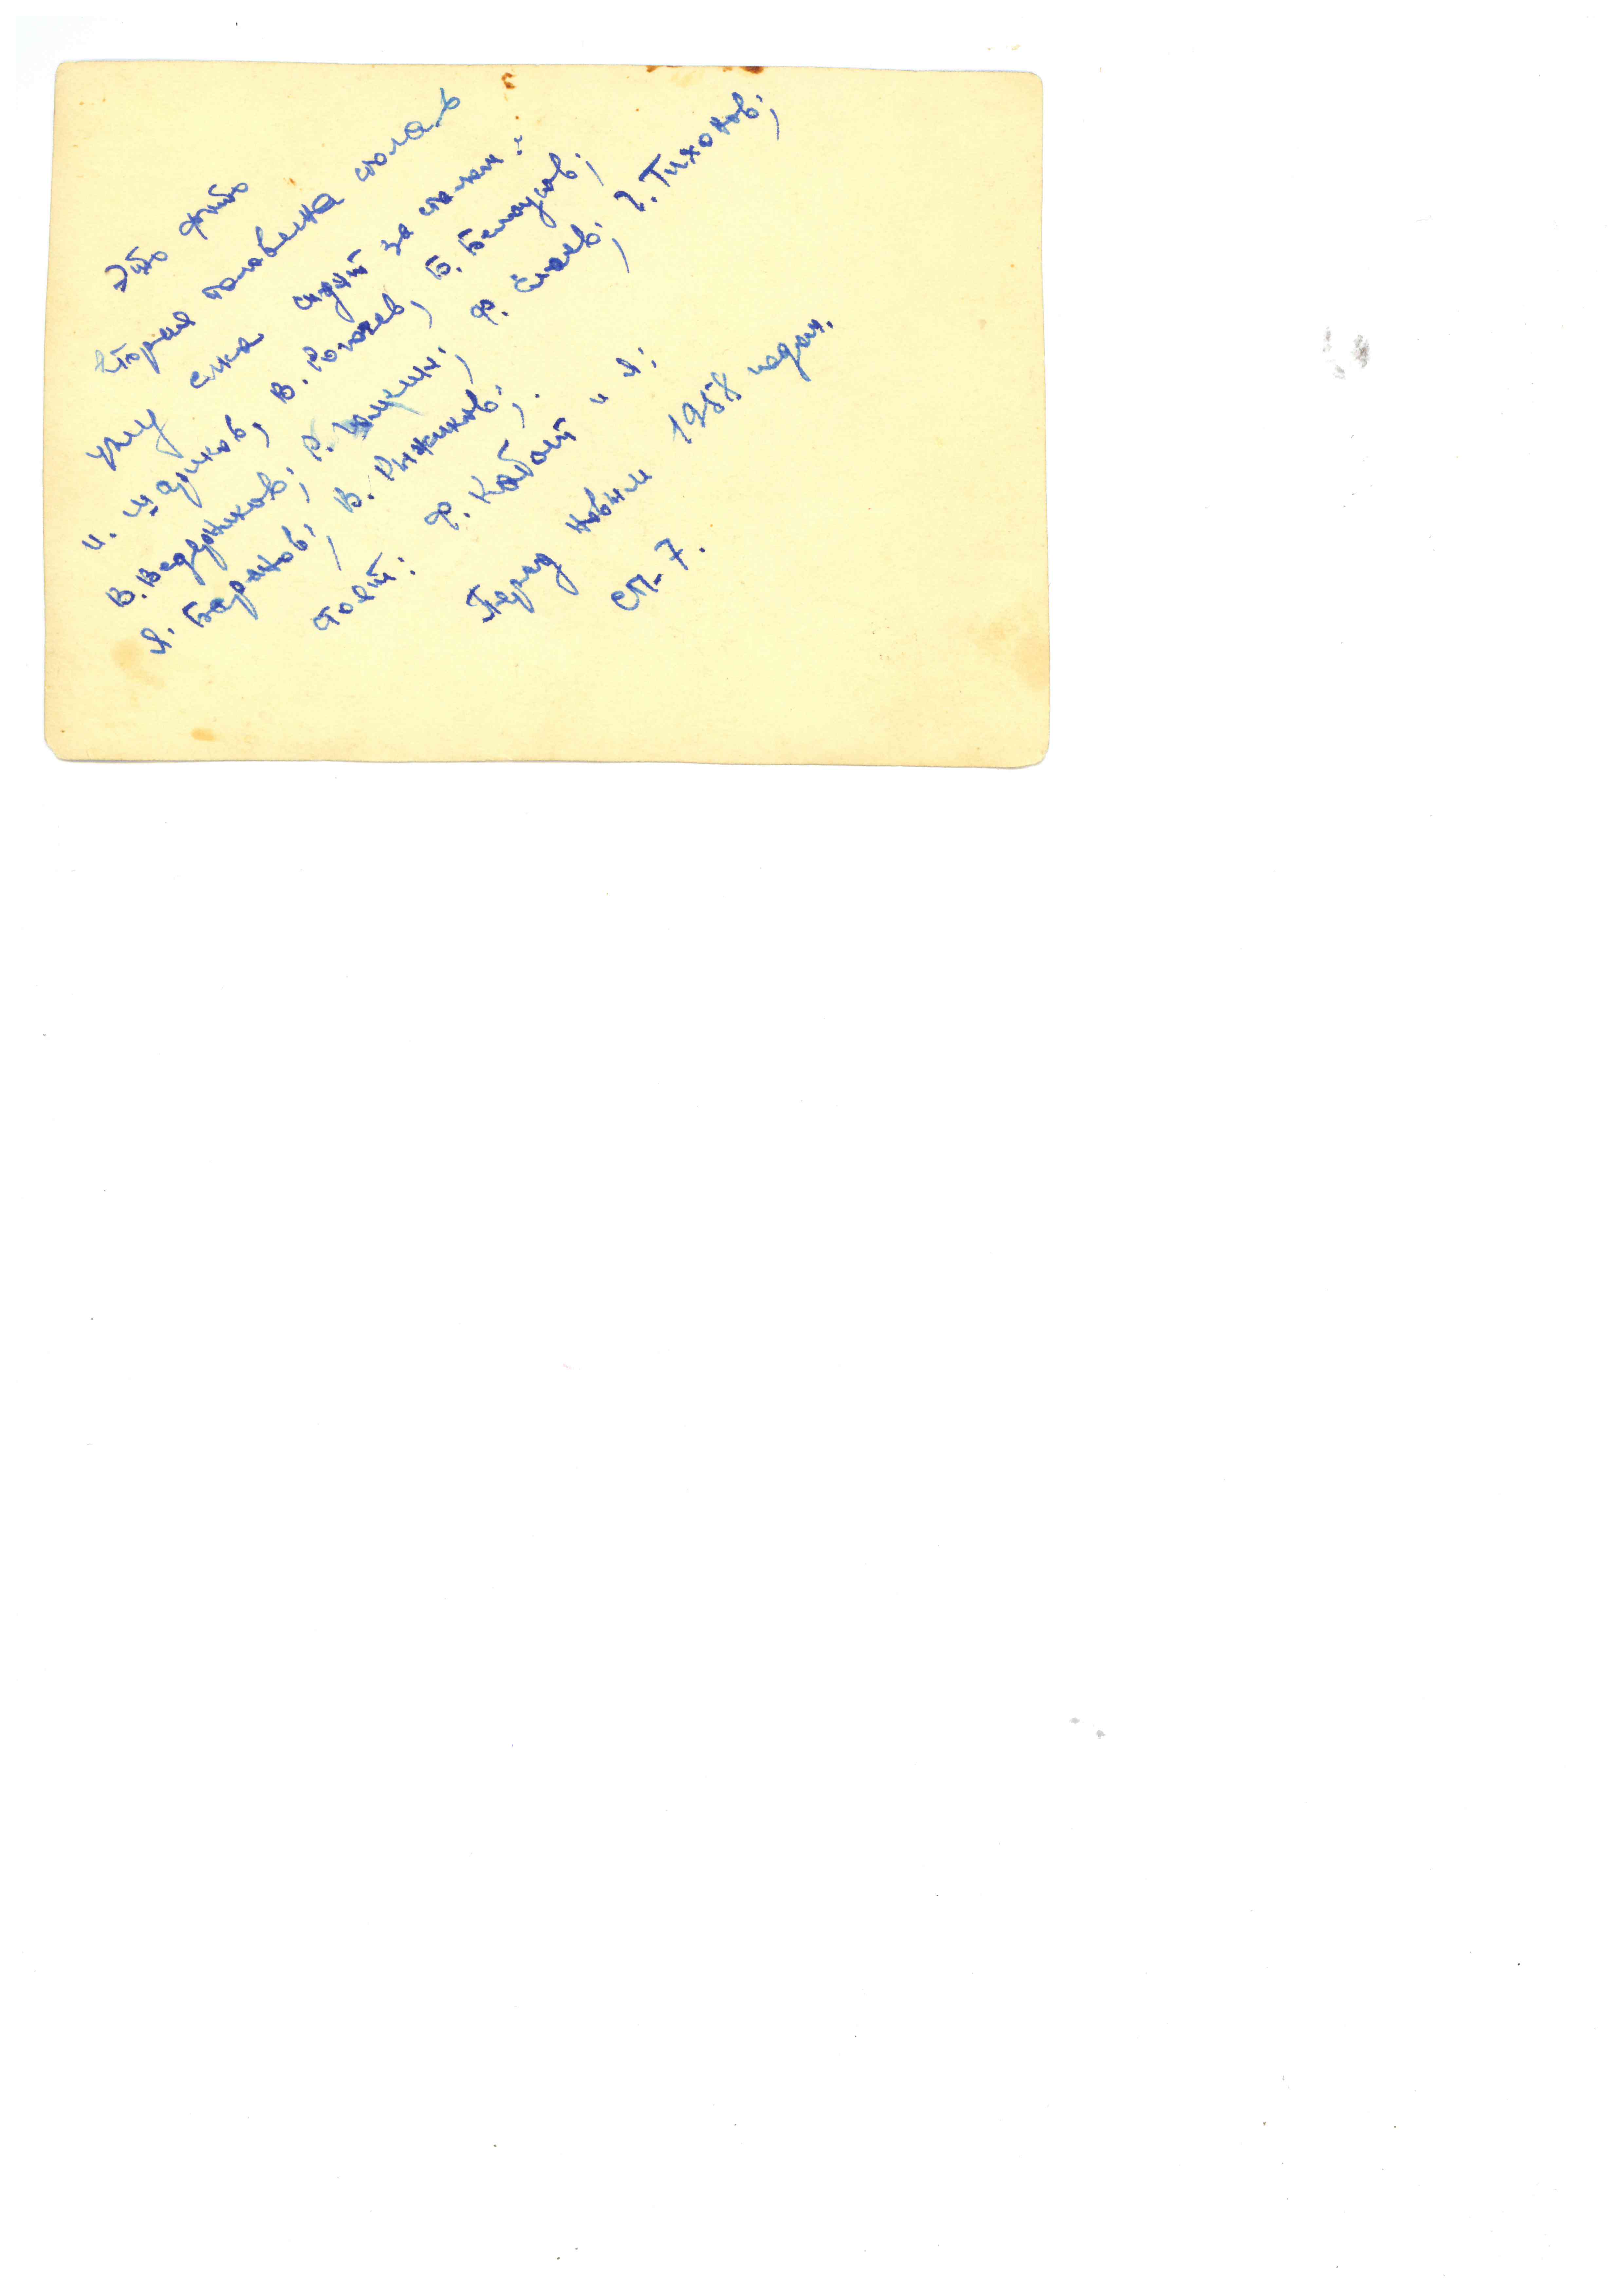 Это фото
вторая половина стола. В
углу ёлка сидят за столом:
И. Шариков; В. Рогачев; Б. Белоусов;
В. Ведерников; Ф. Тихонов;
Я. Баранов; В. Рыжиков;
стоят: Ф. Кабаш и я:
Перед новым 1958 годом.
СП-7.